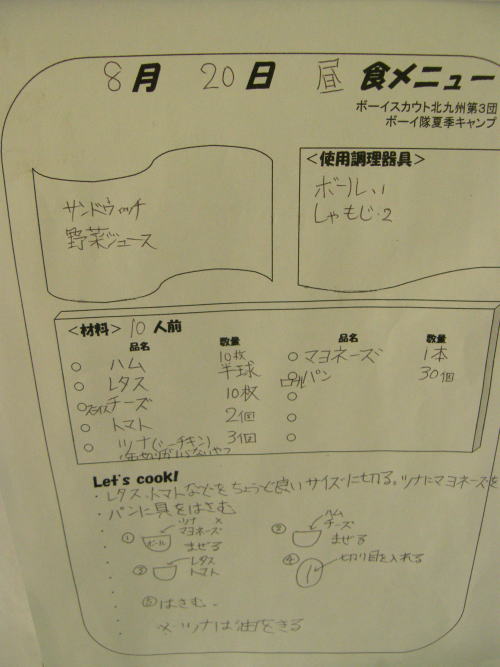 8月 20日 昼 食メニュー
ボーイスカウト北九州第3団
ボーイ隊夏季キャンプ
サンドウィッチ
野菜ジュース
<使用調理器具>
ボール
しゃもじ・2
<材料> 10 人前
品名 数量 品名 数量
○ ハム 10枚 ○ マヨネーズ 1本
○ レタス 半球 ○ ロールパン 30個
○ スライスチーズ 10枚 ○
○ トマト 2個 ○
○ ツナ(シーチキン) 3個 ○
缶切りがいらないやつ
Let's cook!
・レタス、トマトなどをちょうど良いサイズに切る。ツナにマヨネーズを
・パンに具をはさむ
① ツナ マヨネーズ ボール まぜる
② レタス トマト
③ ハム チーズ まぜる
④ 切り目を入れる
⑤ はさむ。
※ツナは油をきる